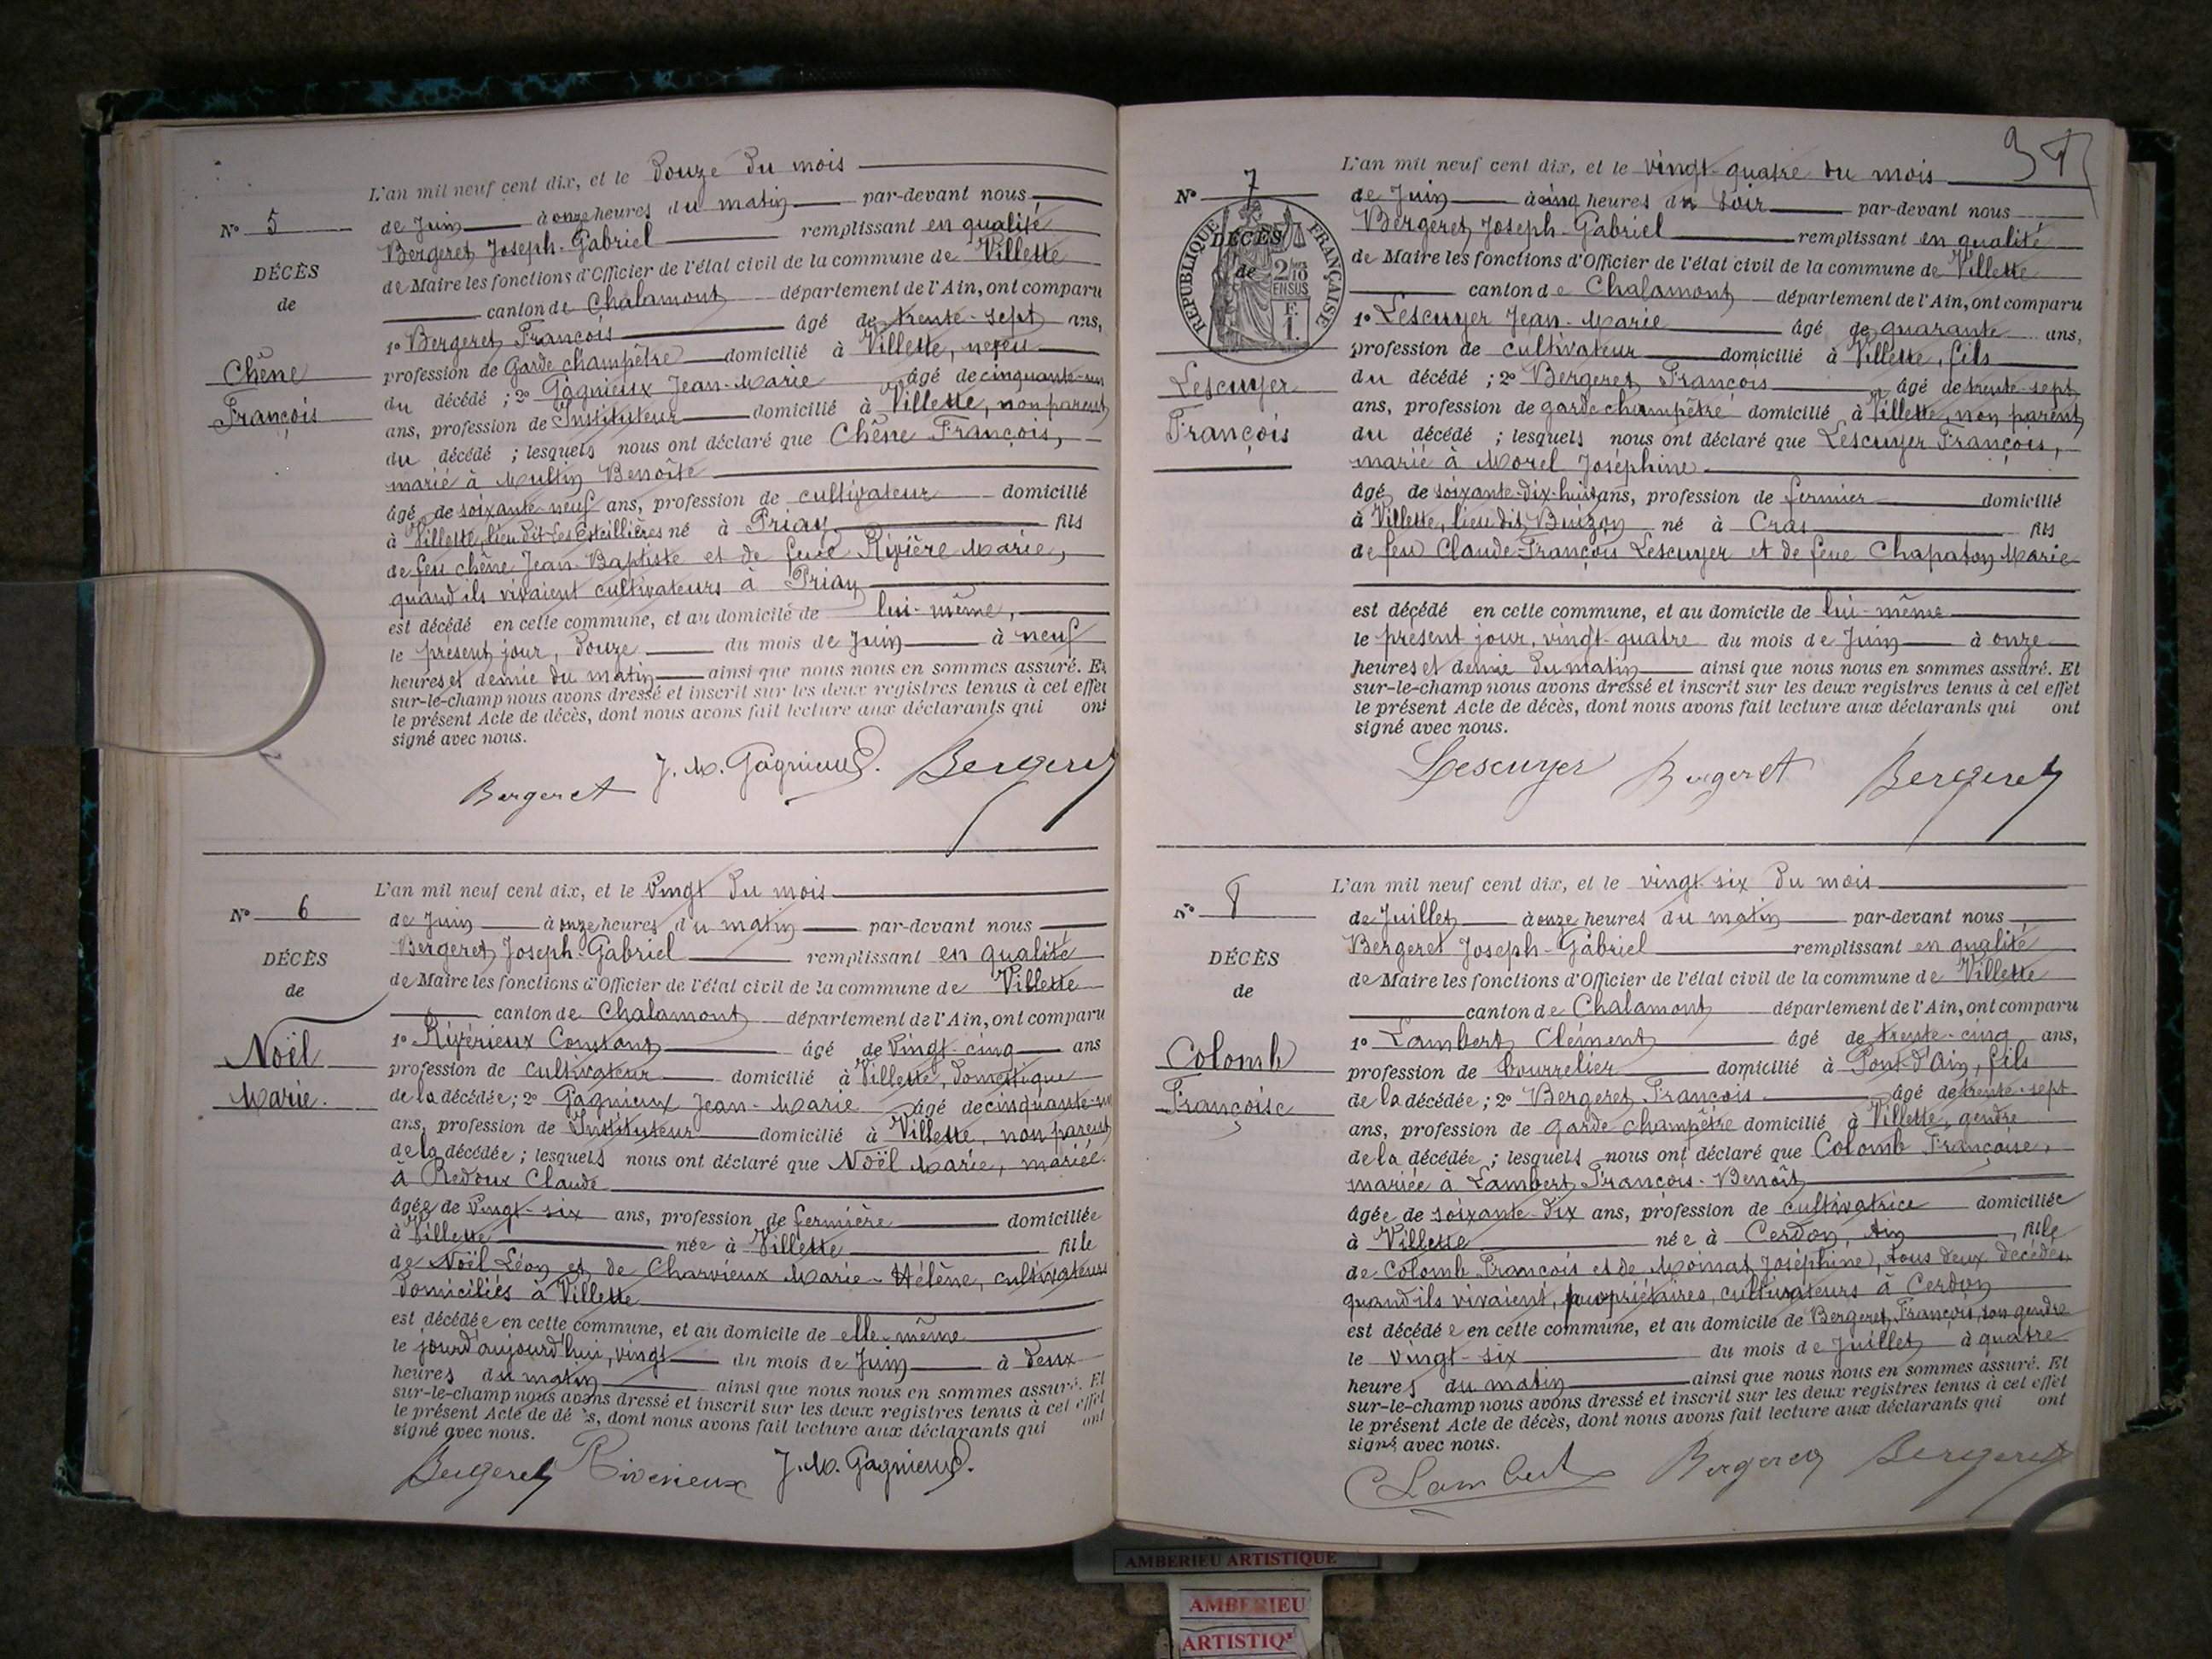 L'an mil neuf cent dix, et le douze du mois
N° 5
de Juin à onze heures du matin par-devant nous
Bergeret Joseph-Gabriel remplissant en qualité
DÉCÈS
de Maire les fonctions d'Officier de l'état civil de la commune de Villette
de
canton de Chalamont département de l'Ain, ont comparu
1° Bergeret François âgé de trente-sept ans,
Chêne
profession de Garde champêtre domicilié à Villette, neveu
François
du décédé ; 2° Gagnieux Jean-Marie âgé de cinquante-un
ans, profession de Instituteur domicilié à Villette, non parent
du décédé ; lesquels nous ont déclaré que Chêne François,
marié à Multin Benoîte
âgé de soixante-neuf ans, profession de cultivateur domicilié
à Villette, lieu dit Les né à Priay fils
de feu Chêne Jean-Baptiste et de feue Rivière Marie,
quand ils vivaient cultivateurs à Priay
est décédé en cette commune, et au domicile de lui-même,
le présent jour, douze du mois de Juin à neuf
heures et demie du matin ainsi que nous nous en sommes assuré. Et
sur-le-champ nous avons dressé et inscrit sur les deux registres tenus à cet effet
le présent Acte de décès, dont nous avons fait lecture aux déclarants qui ont
signé avec nous.
Bergeret J. M. Gagnieux. Bergeret
L'an mil neuf cent dix, et le vingt du mois
N° 6
de Juin à onze heures du matin par-devant nous
Bergeret Joseph-Gabriel remplissant en qualité
DÉCÈS
de Maire les fonctions d'Officier de l'état civil de la commune de Villette
de
canton de Chalamont département de l'Ain, ont comparu
1° Rivérieux Constant âgé de vingt-cinq ans
Noël
profession de cultivateur domicilié à Villette, domestique
Marie.
de la décédée ; 2° Gagnieux Jean-Marie âgé de cinquante-un
ans, profession de Instituteur domicilié à Villette, non parent
de la décédée ; lesquels nous ont déclaré que Noël Marie, mariée
à Redoux Claude
âgée de vingt-six ans, profession de fermière domiciliée
à Villette née à Villette fille
de Noël Léon et de Charvieux Marie-Hélène, cultivateurs
domiciliés à Villette
est décédée en cette commune, et au domicile de elle-même
le jour d'aujourd'hui, vingt du mois de Juin à deux
heures du matin ainsi que nous nous en sommes assuré. Et
sur-le-champ nous avons dressé et inscrit sur les deux registres tenus à cet effet
le présent Acte de dé s, dont nous avons fait lecture aux déclarants qui ont
signé avec nous.
Bergeret Riverieux J. M. Gagnieux.
37
L'an mil neuf cent dix, et le vingt-quatre du mois
N° 7
de Juin à cinq heures du soir par-devant nous
Bergeret Joseph-Gabriel remplissant en qualité
DÉCÈS
RÉPUBLIQUE FRANÇAISE
2/10 EN SUS
F. 1.
de Maire les fonctions d'Officier de l'état civil de la commune de Villette
de
canton de Chalamont département de l'Ain, ont comparu
1° Lescuyer Jean-Marie âgé de quarante ans,
profession de cultivateur domicilié à Villette, fils
Lescuyer
du décédé ; 2° Bergeret François âgé de trente-sept
ans, profession de garde champêtre domicilié à Villette, non parent
François
du décédé ; lesquels nous ont déclaré que Lescuyer François,
marié à Morel Joséphine
âgé de soixante-dix-huit ans, profession de fermier domicilié
à Villette, lieu dit Buizon né à Cras fils
de feu Claude-François Lescuyer et de feue Chapaton Marie
est décédé en cette commune, et au domicile de lui-même
le présent jour, vingt-quatre du mois de Juin à onze
heures et demie du matin ainsi que nous nous en sommes assuré. Et
sur-le-champ nous avons dressé et inscrit sur les deux registres tenus à cet effet
le présent Acte de décès, dont nous avons fait lecture aux déclarants qui ont
signé avec nous.
Lescuyer Bergeret Bergeret
L'an mil neuf cent dix, et le vingt-six du mois
N° 8
de Juillet à onze heures du matin par-devant nous
Bergeret Joseph-Gabriel remplissant en qualité
DÉCÈS
de Maire les fonctions d'Officier de l'état civil de la commune de Villette
de
canton de Chalamont département de l'Ain, ont comparu
1° Lambert Clément âgé de trente-cinq ans,
Colomb
profession de bourrelier domicilié à Pont-d'Ain, fils
Françoise
de la décédée ; 2° Bergeret François âgé de trente-sept
ans, profession de garde champêtre domicilié à Villette, gendre
de la décédée ; lesquels nous ont déclaré que Colomb Françoise,
mariée à Lambert François-Benoît
âgée de soixante-dix ans, profession de cultivatrice domiciliée
à Villette née à Cerdon, Ain, fille
de Colomb François et de Moinat Joséphine, tous deux décédés
quand ils vivaient, propriétaires, cultivateurs à Cerdon
est décédée en cette commune, et au domicile de Bergeret François, son gendre
le vingt-six du mois de Juillet à quatre
heures du matin ainsi que nous nous en sommes assuré. Et
sur-le-champ nous avons dressé et inscrit sur les deux registres tenus à cet effet
le présent Acte de décès, dont nous avons fait lecture aux déclarants qui ont
signé avec nous.
C Lambert Bergeret Bergeret
AMBERIEU ARTISTIQUE
AMBERIEU
ARTISTIQ